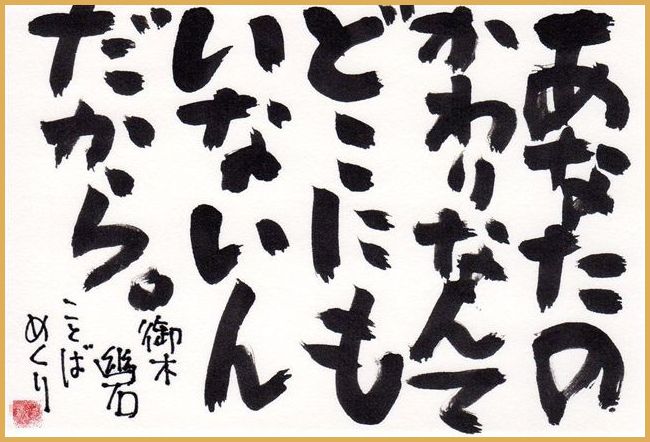 あなたの
かわりなんて
どこにも
いないん
だから。
御木
幽石
ことば
めくり